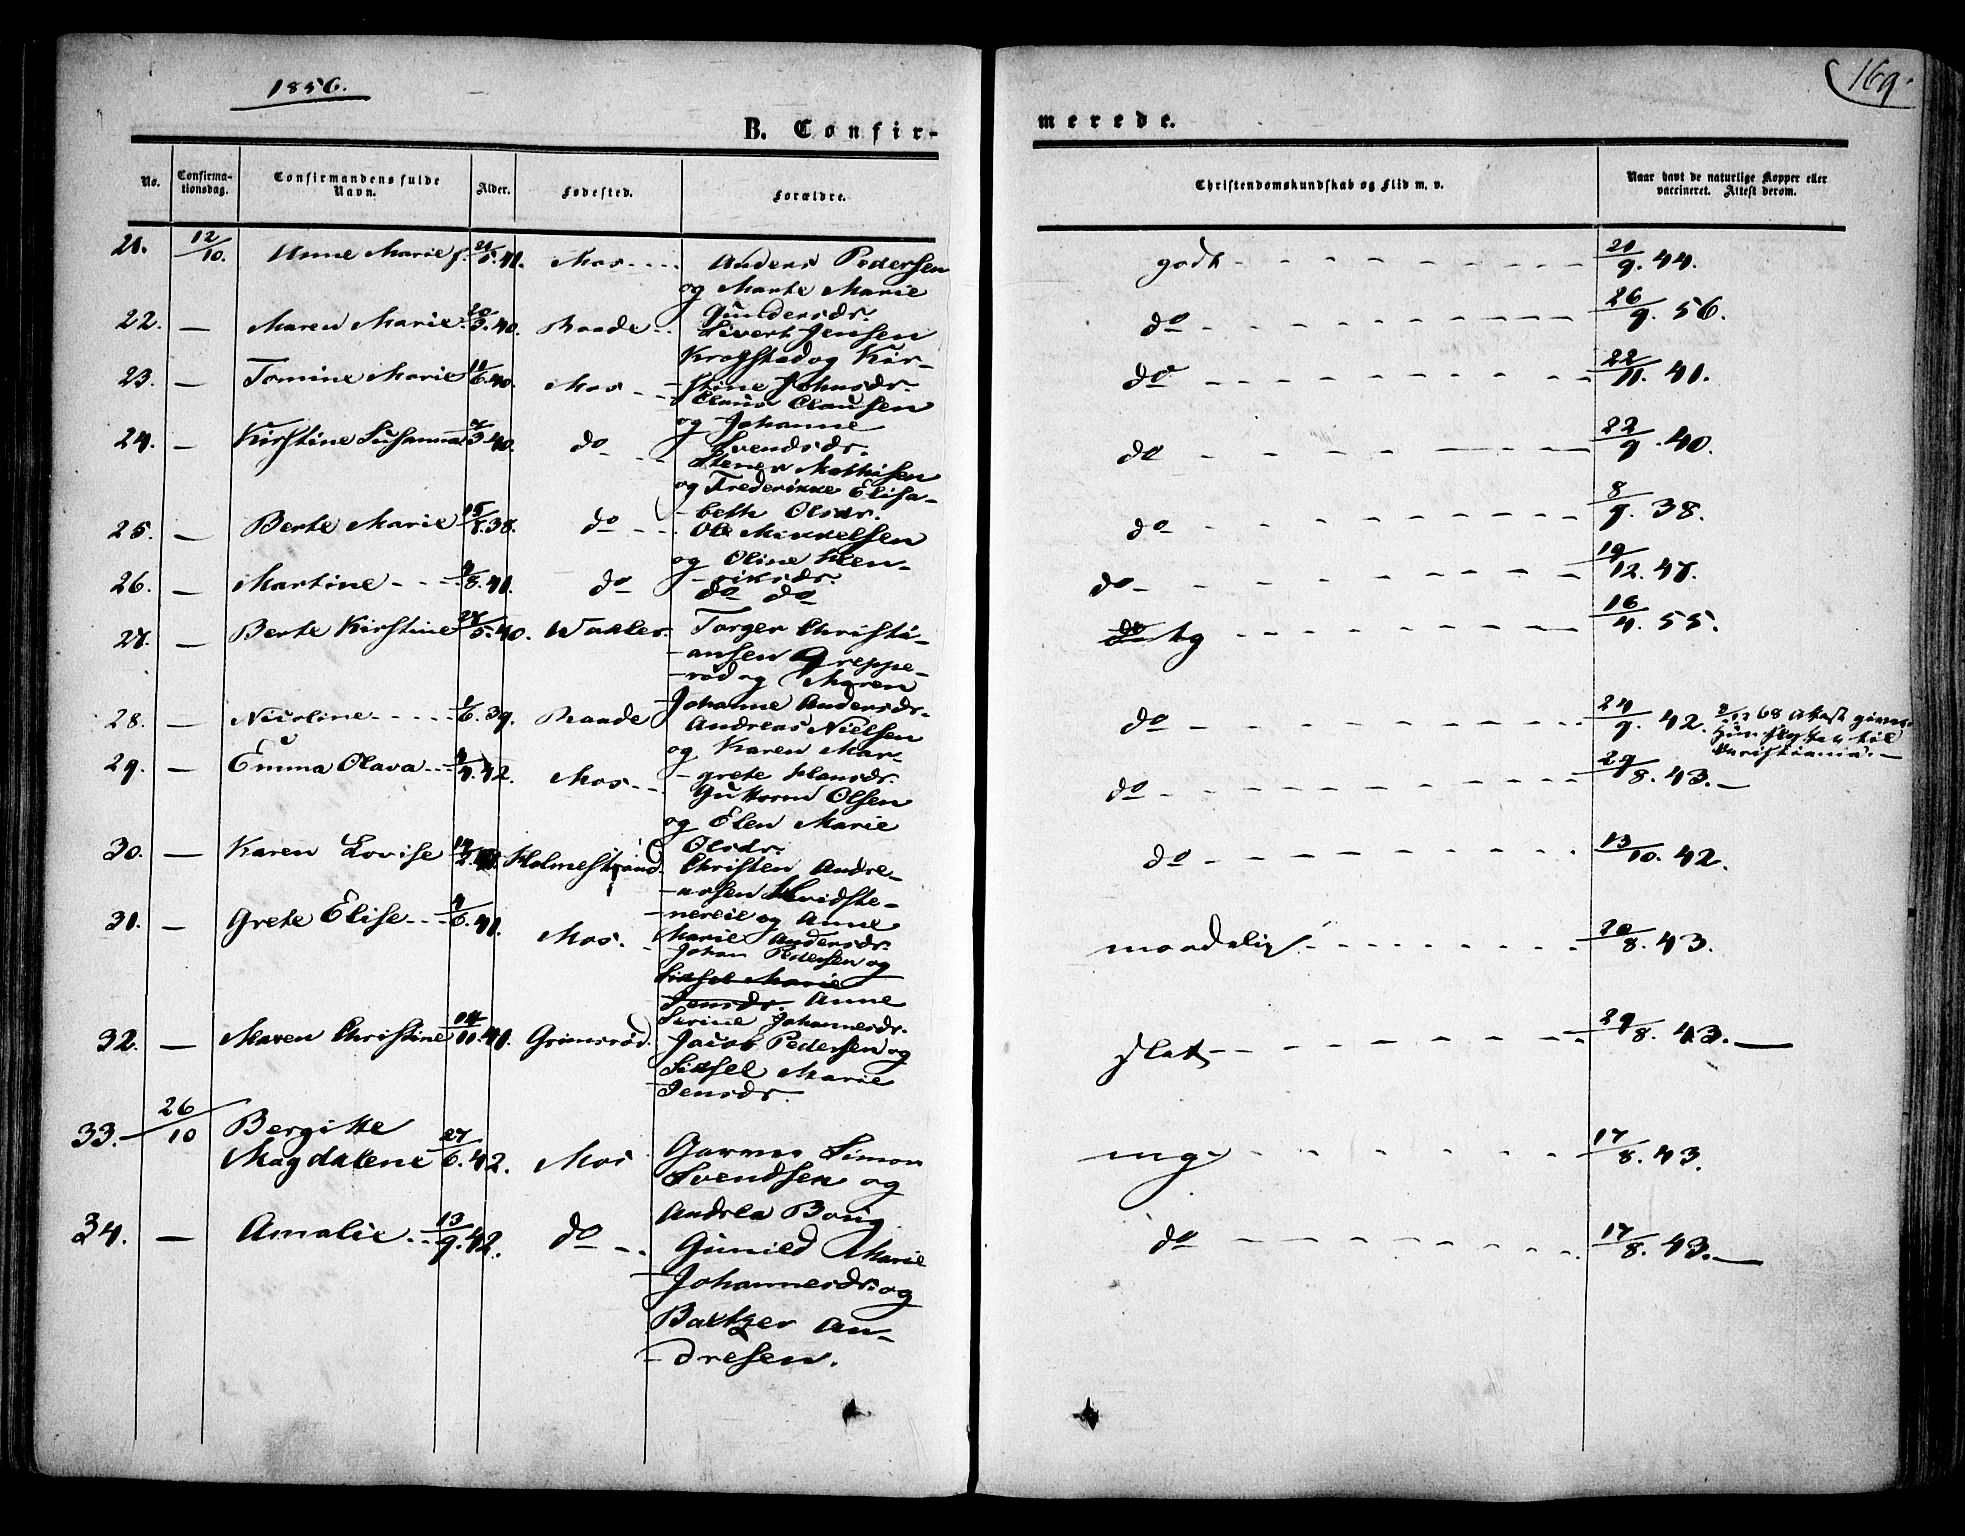 1856.
169.
B. Confir-
merede.
No. Confirma-tionsdag. Confirmandens fulde Navn. Alder. Fødested. Forældre. Christendomskundskab og Flid m. v. Naar havt de naturlige Kopper eller vaccineret. Attest derom.
21. 12/10. Anne Marie 41. Mos Anders Pedersen godt 21/9. 44.
og Marte Marie
Gundersdr.
22. — Maren Marie 40. Raade Sivert Jensen do 26/9. 56.
Krogstad og Kir-
stine Johnsdr.
23. — Tomine Marie 40. Mos Claus Clausen do 22/11. 41.
og Johanne
Svendsdr.
24. — Kirstine Susanna 40. do Stener Mathisen do 22/9. 40.
og Frederikke Elisa-
beth Olsdr.
25. — Berte Marie 38. do Ole Mikkelsen do 8/9. 38.
og Oline Hen-
riksdr.
26. — Martine 41. do do do do 19/12. 47.
27. — Berte Kirstine 27/5. 40. Wahler Torger Christi- do tg 16/4. 55.
ansen Greppe-
rød og Maren
Johanne Andersdr.
28. — Nicoline 39. Raade Andreas Nielsen do 24/9. 42. 68 Attest given
Christiania.
og Karen Mar-
grete Hansdr.
29. — Emma Olava 42. Mos Guttorm Olsen do 29/8. 43. —
og Elen Marie
Olsdr.
30. — Karen Lovise Holmestrand Christen Andre- do 13/10. 42.
asen
og Anne
Marie Andersdr.
31. — Grete Elise 41. Mos. Johan Pedersen og maadelig 20/8. 43.
Sidsel Marie
Jensdr. Anne
Serine Johannesdr.
32. — Maren Christine 14/11. 41. Grimsrød Jacob Pedersen og slet 29/8. 43. —
Sidsel Marie
Jensdr.
33. — 26/10 Bergitte
Magdalene 27/6. 42. Mos Garver Simon mg 17/8. 43.
Svendsen og
Andrea Boug
34. — Amalie 13/9. 42. do Gunild Marie do 17/8. 43. —
Johannesdr. og
Baltzer An-
dresen.